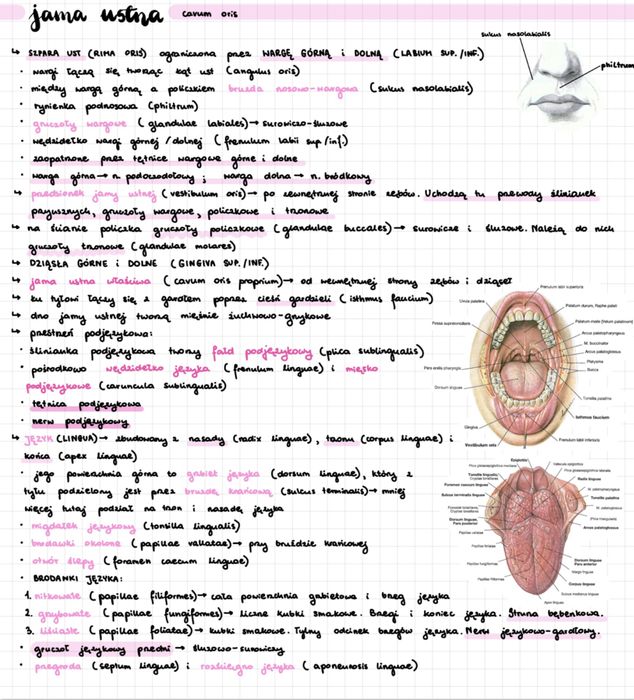 jama ustna cavum oris
↳ SZPARA UST (RIMA ORIS) ograniczona przez WARGĘ GÓRNĄ i DOLNĄ (LABIUM SUP./INF.)
· wargi łączą się tworząc kąt ust (angulus oris)
· między wargą górną a policzkiem bruzda nosowo-wargowa (sulcus nasolabialis)
· rynienka podnosowa (philtrum)
· gruczoły wargowe (glandulae labiales) → surowiczo-śluzowe
· wędzidełko wargi górnej/dolnej (frenulum labii sup/inf.)
· zaopatrzone przez tętnice wargowe górne i dolne
· warga górna → n. podoczodołowy ; warga dolna → n. bródkowy
↳ przedsionek jamy ustnej (vestibulum oris) → po zewnętrznej stronie zębów. Uchodzą tu przewody ślinianek
przyusznych, gruczoły wargowe, policzkowe i trzonowe
↳ na ścianie policzka gruczoły policzkowe (glandulae buccales) → surowicze i śluzowe. Należą do nich
gruczoły trzonowe (glandulae molares)
↳ DZIĄSŁA GÓRNE i DOLNE (GINGIVA SUP./INF.)
↳ jama ustna właściwa (cavum oris proprium) → od wewnętrznej strony zębów i dziąseł
↳ ku tyłowi łączy się z gardłem poprzez cieśń gardzieli (isthmus faucium)
↳ dno jamy ustnej tworzą mięśnie żuchwowo-gnykowe
↳ przestrzeń podjęzykowa:
· ślinianka podjęzykowa tworzy fałd podjęzykowy (plica sublingualis)
· pośrodkowo wędzidełko języka (frenulum linguae) i mięsko
podjęzykowe (caruncula sublingualis)
· tętnica podjęzykowa
· nerw podjęzykowy
↳ JĘZYK (LINGUA) → zbudowany z nasady (radix linguae), trzonu (corpus linguae) i
końca (apex linguae)
· jego powierzchnia górna to grzbiet języka (dorsum linguae), który z
tyłu podzielony jest przez bruzdę krańcową (sulcus terminalis) → mniej
więcej tutaj podział na trzon i nasadę języka
· migdałek językowy (tonsilla lingualis)
· brodawki okolone (papillae vallatae) → przy bruździe krańcowej
· otwór ślepy (foramen caecum linguae)
· BRODAWKI JĘZYKA:
1. nitkowate (papillae filiformes) → cała powierzchnia grzbietowa i brzeg języka
2. grzybowate (papillae fungiformes) → liczne kubki smakowe. Brzegi i koniec języka. Struna bębenkowa.
3. liściaste (papillae foliatae) → kubki smakowe. Tylny odcinek brzegów języka. Nerw językowo-gardłowy.
· gruczoł językowy przedni → śluzowo-surowiczy
· przegroda (septum linguae) i rozcięgno języka (aponeurosis linguae)
sulcus nasolabialis
philtrum
Frenulum labii superioris
Uvula palatina
Palatum durum, Raphe palati
Palatum molle [Velum palatinum]
Fossa supratonsillaris
Arcus palatopharyngeus
M. buccinator
Arcus palatoglossus
Plica
Bucca
Pars oralis pharyngis
Dorsum linguae
Tonsilla palatina
Isthmus faucium
Gingiva
Frenulum labii inferioris
Vestibulum oris
Epiglottis
Plica glossoepiglottica mediana
Vallecula epiglottica
Radix linguae
Tonsilla lingualis
Foramen caecum linguae
Sulcus terminalis linguae
Tonsilla palatina
Dorsum linguae, Pars posterior
Papillae vallatae
Papillae foliatae
Papillae fungiformes
Dorsum linguae Pars anterior
Margo linguae
Papillae filiformes
Corpus linguae
Sulcus medianus linguae
Apex linguae